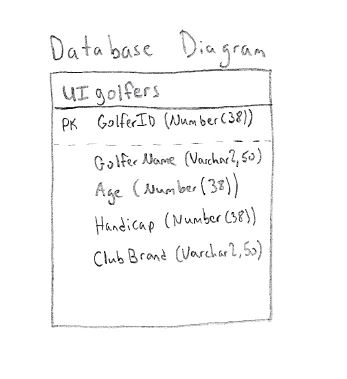 Database Diagram
UI golfers
PK GolferID (Number(38))
Golfer Name (Varchar2,50)
Age (Number(38))
Handicap (Number(38))
Club Brand (Varchar2,50)